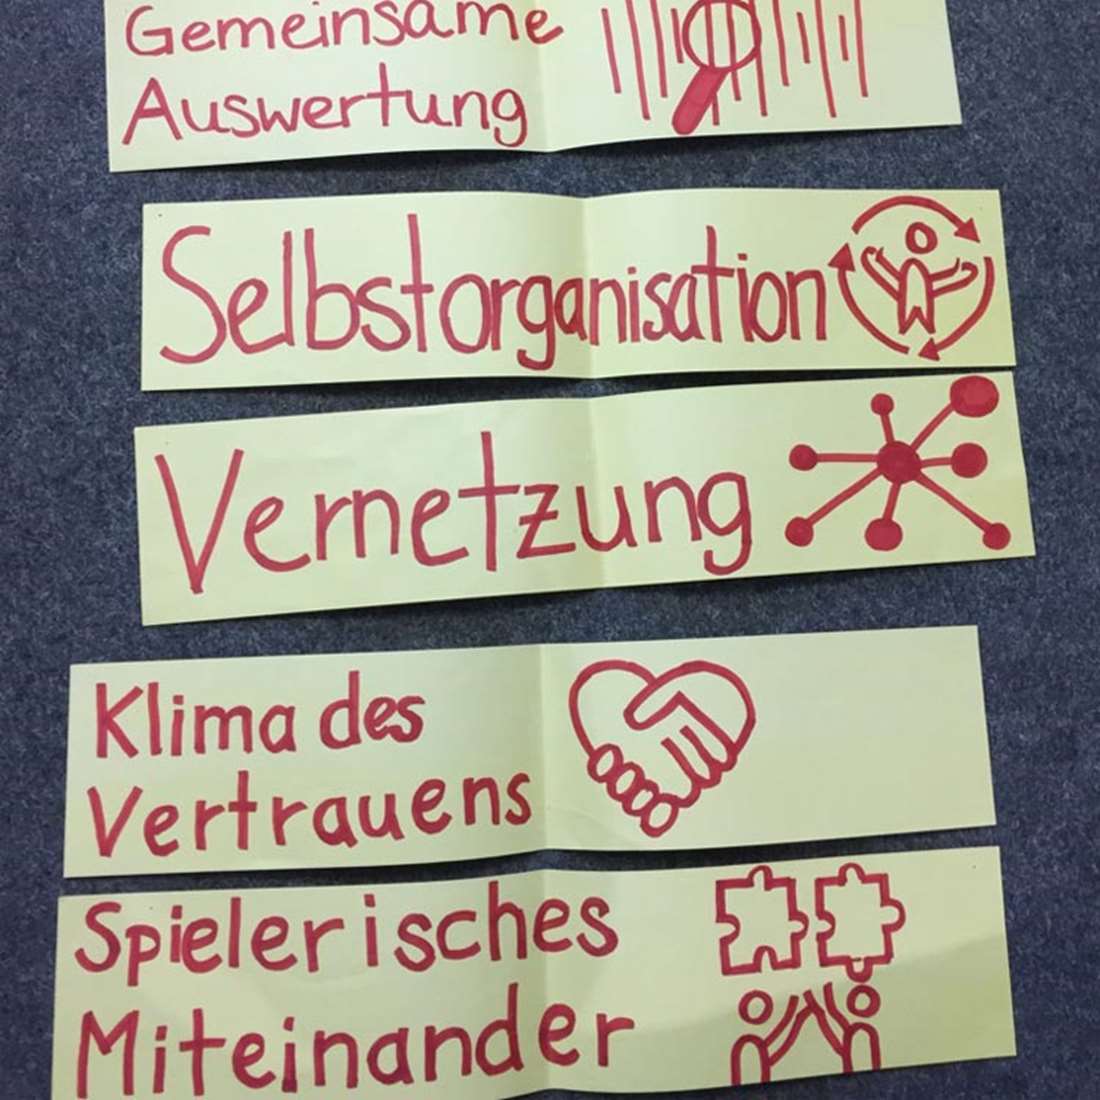 Gemeinsame
Auswertung
Selbstorganisation
Vernetzung
Klima des
Vertrauens
Spielerisches
Miteinander